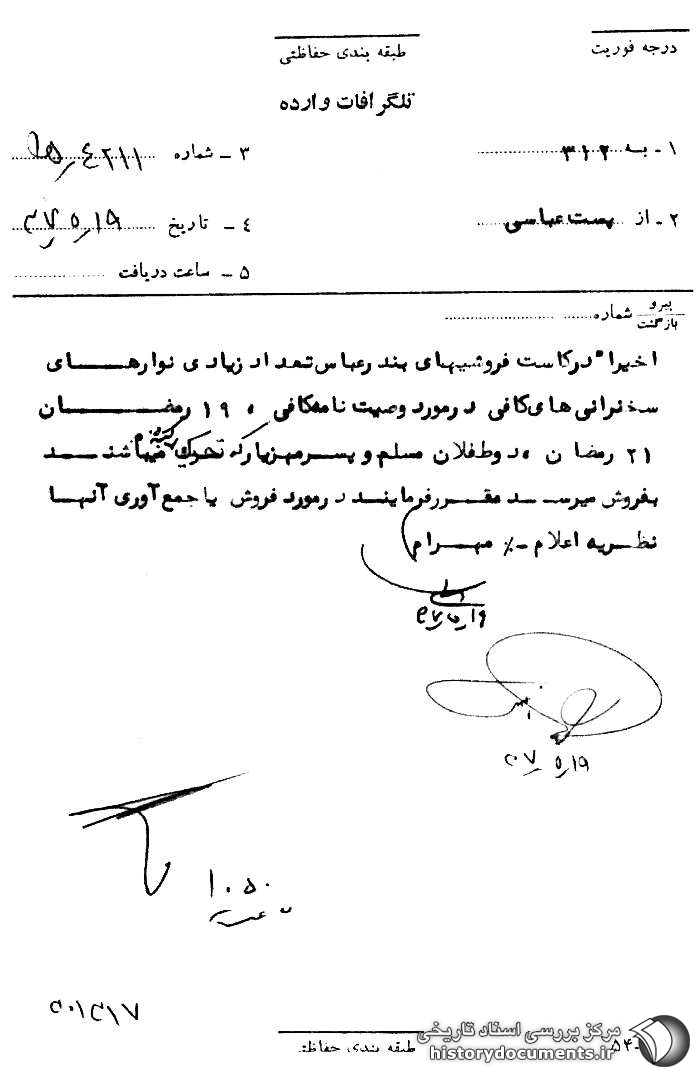 طبقه بندی حفاظتی
درجه فوریت
تلگرافات وارده
۱ - به ۳۱۲
۳ - شماره
۲ - از بست عباسی
۴ - تاریخ ۳۷٫۵٫۱۹
۵ - ساعت دریافت
پیرو
بازگشت
شماره
اخیرا" درکاست فروشیهای بندرعباس تعداد زیادی نوارهای
سخنرانی های کافی درمورد وصیت نامه کافی ، ۱۹ رمضان
۲۱ رمضان ، دوطفلان مسلم و پسرمهزیار که تحریک میباشند
بفروش میرسد مقررفرمایند درمورد فروش یاجمع آوری آنها
نظریه اعلام -٪ مهرام
۳۷٫۵٫۱۹
۳۷٫۵٫۱۹
۱۰۵۰
طبقه بندی حفاظتی
مرکز بررسی اسناد تاریخی
historydocuments.ir